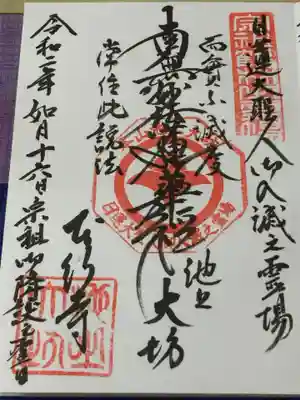 日蓮大聖人御入滅之霊場
而実不滅度
池上
南無妙法蓮華経
大坊
常住此説法
本行寺
令和二年如月十六日宗祖御降誕之聖日